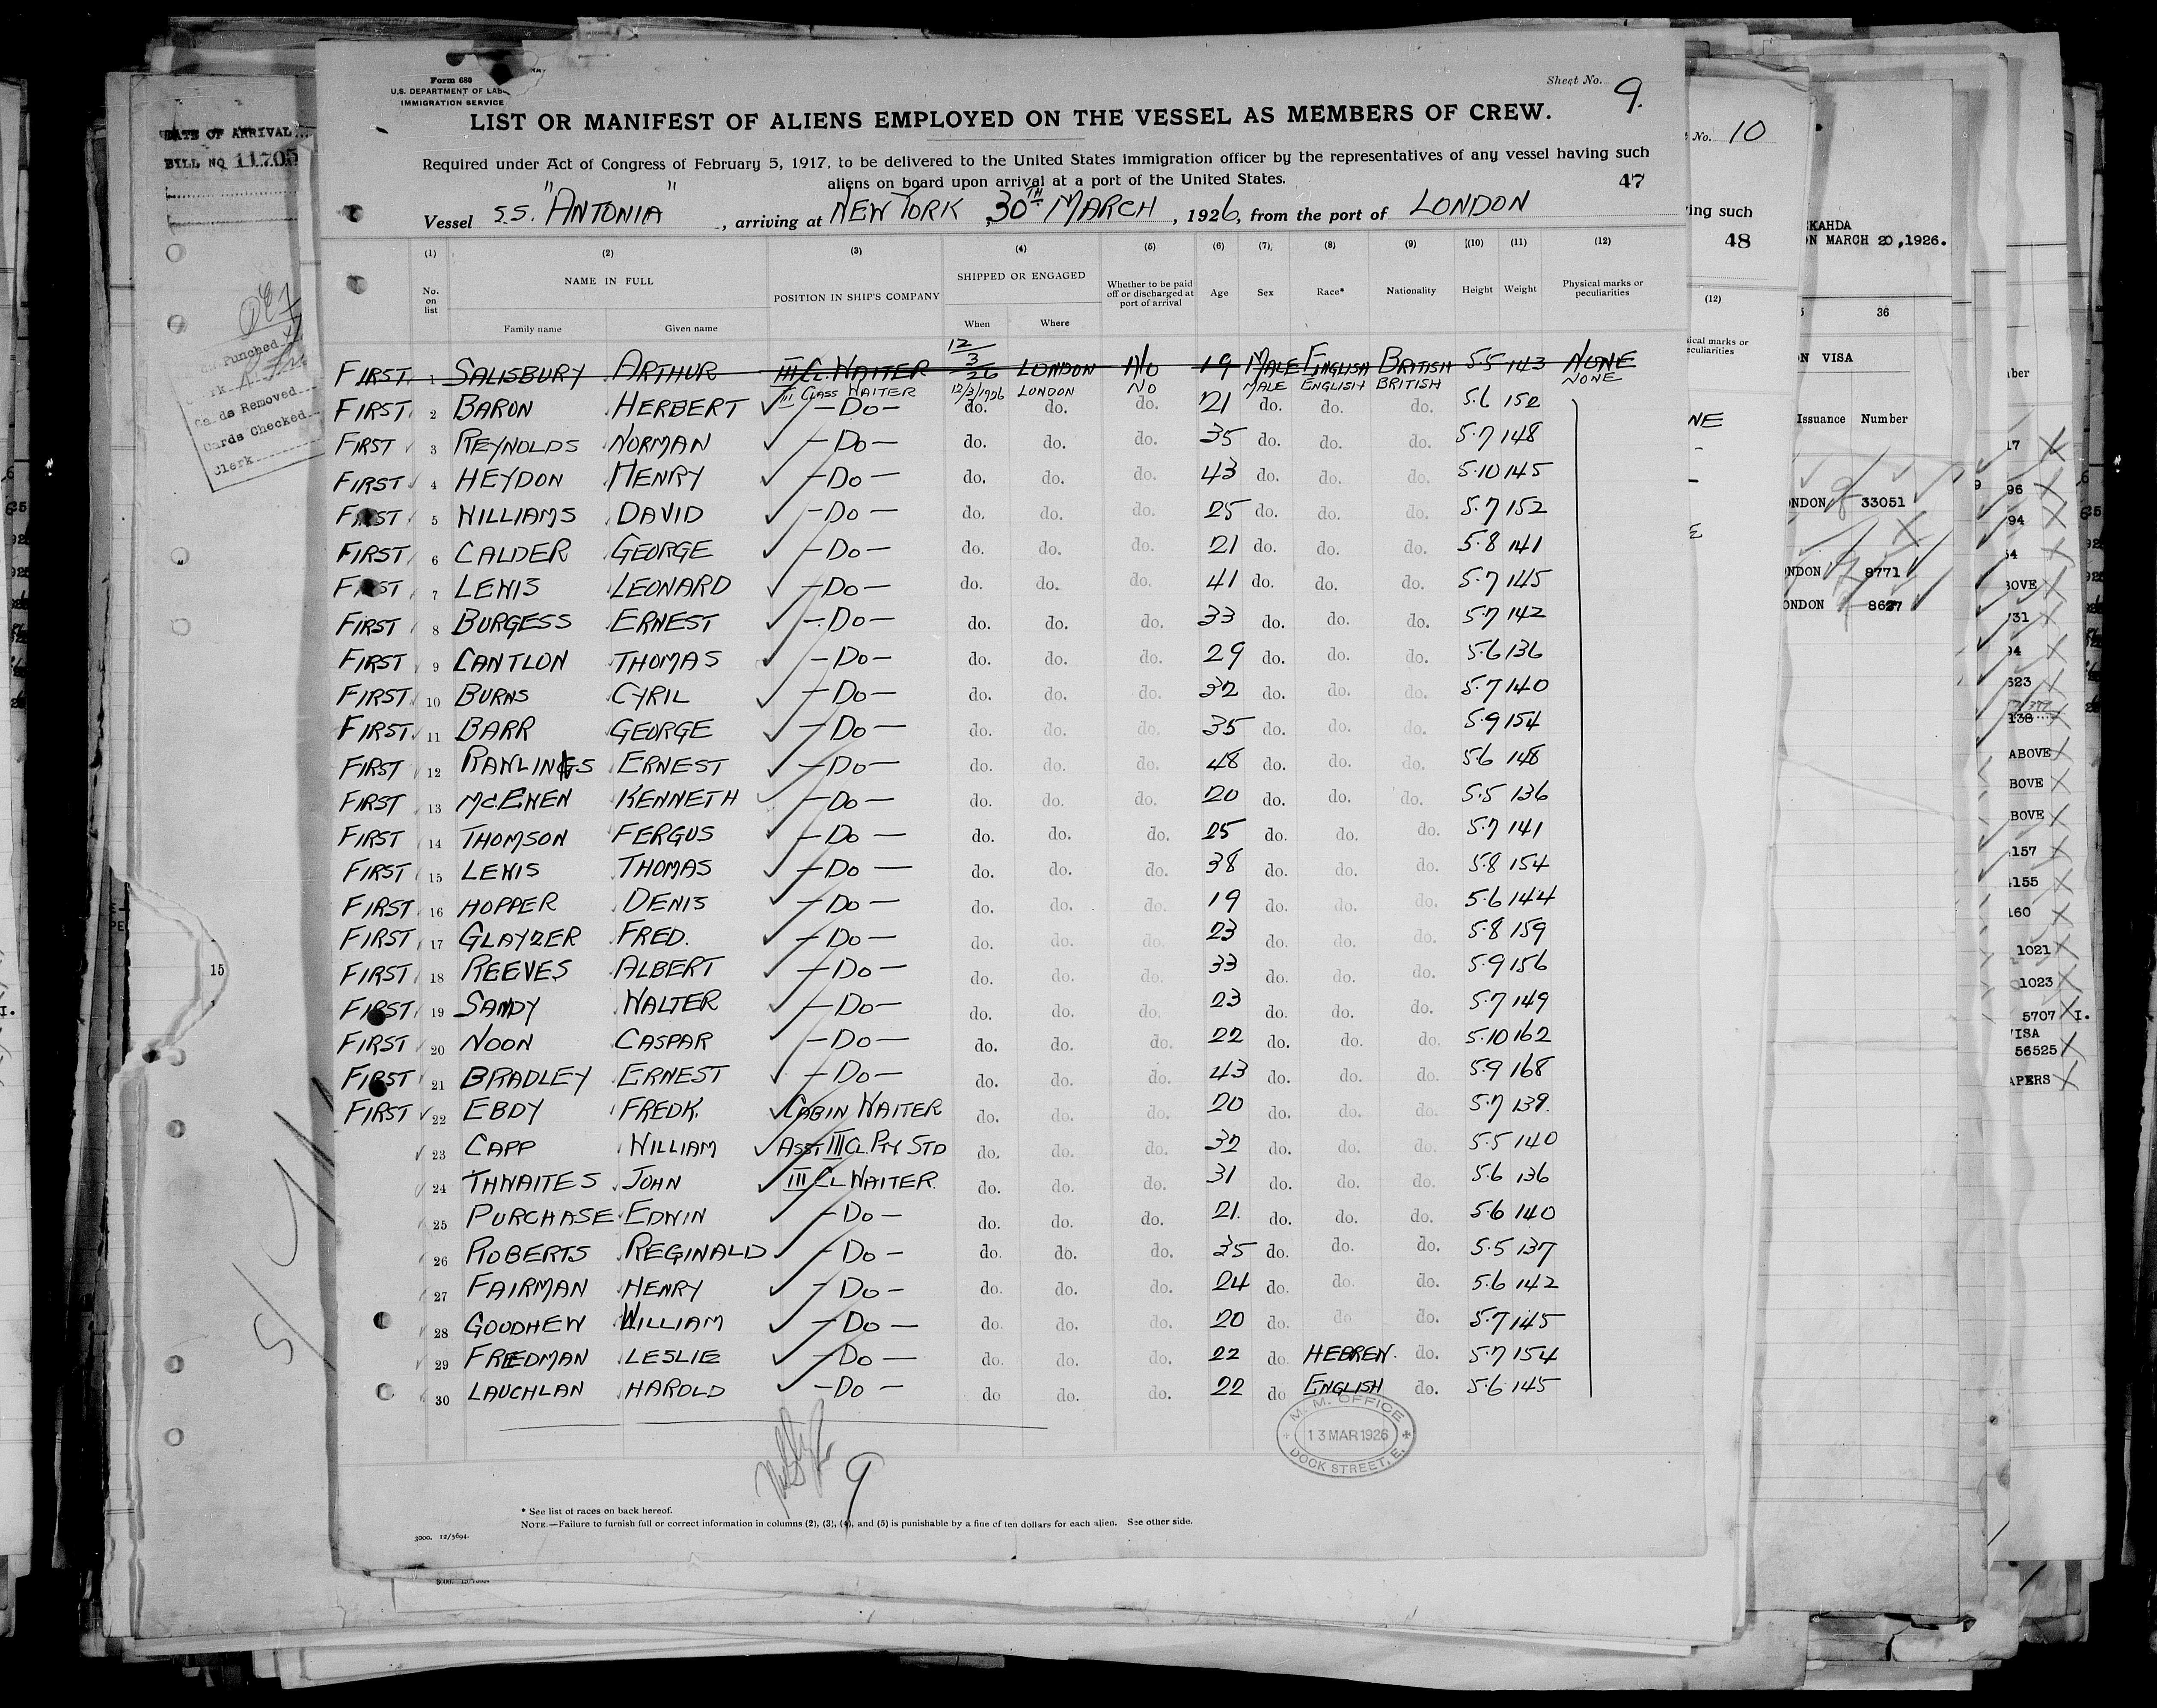 Form 680
U.S. DEPARTMENT OF LAB
IMMIGRATION SERVICE
Sheet No. 9.
LIST OR MANIFEST OF ALIENS EMPLOYED ON THE VESSEL AS MEMBERS OF CREW.
Required under Act of Congress of February 5, 1917, to be delivered to the United States immigration officer by the representatives of any vessel having such
aliens on board upon arrival at a port of the United States. 47
Vessel S.S. "ANTONIA", arriving at NEW YORK, 30TH MARCH, 1926, from the port of LONDON
(1) (2) (3) (4) (5) (6) (7) (8) (9) (10) (11) (12)
No. on list NAME IN FULL POSITION IN SHIP'S COMPANY SHIPPED OR ENGAGED Whether to be paid off or discharged at port of arrival Age Sex Race* Nationality Height Weight Physical marks or peculiarities
Family name Given name When Where
FIRST 1 SALISBURY ARTHUR III CL. WAITER 12/3/26 LONDON NO 19 MALE ENGLISH BRITISH 5.5 143 NONE
III CLASS WAITER 12/3/1926 LONDON NO MALE ENGLISH BRITISH NONE
FIRST 2 BARON HERBERT ✓ - DO - do. do. do. 21 do. do. do. 5.6 152
FIRST 3 REYNOLDS NORMAN ✓ - DO - do. do. do. 35 do. do. do. 5.7 148
FIRST 4 HEYDON HENRY ✓ - DO - do. do. do. 43 do. do. do. 5.10 145
FIRST 5 WILLIAMS DAVID ✓ - DO - do. do. do. 25 do. do. do. 5.7 152
FIRST 6 CALDER GEORGE ✓ - DO - do. do. do. 21 do. do. do. 5.8 141
FIRST 7 LEWIS LEONARD ✓ - DO - do. do. do. 41 do. do. do. 5.7 145
FIRST 8 BURGESS ERNEST ✓ - DO - do. do. do. 33 do. do. do. 5.7 142
FIRST 9 CANTLON THOMAS ✓ - DO - do. do. do. 29 do. do. do. 5.6 136
FIRST 10 BURNS CYRIL ✓ - DO - do. do. do. 32 do. do. do. 5.7 140
FIRST 11 BARR GEORGE ✓ - DO - do. do. do. 35 do. do. do. 5.9 154
FIRST 12 RAWLINGS ERNEST ✓ - DO - do. do. do. 48 do. do. do. 5.6 148
FIRST 13 McEWEN KENNETH ✓ - DO - do. do. do. 20 do. do. do. 5.5 136
FIRST 14 THOMSON FERGUS ✓ - DO - do. do. do. 25 do. do. do. 5.7 141
FIRST 15 LEWIS THOMAS ✓ - DO - do. do. do. 38 do. do. do. 5.8 154
FIRST 16 HOPPER DENIS ✓ - DO - do. do. do. 19 do. do. do. 5.6 144
FIRST 17 GLAYZER FRED. ✓ - DO - do. do. do. 23 do. do. do. 5.8 159
FIRST 18 REEVES ALBERT ✓ - DO - do. do. do. 33 do. do. do. 5.9 156
FIRST 19 SANDY WALTER ✓ - DO - do. do. do. 23 do. do. do. 5.7 149
FIRST 20 NOON CASPAR ✓ - DO - do. do. do. 22 do. do. do. 5.10 162
FIRST 21 BRADLEY ERNEST ✓ - DO - do. do. do. 43 do. do. do. 5.9 168
FIRST 22 EBDY FREDK. ✓ CABIN WAITER do. do. do. 20 do. do. do. 5.7 139.
23 CAPP WILLIAM ✓ ASST III CL. PTY STD do. do. do. 32 do. do. do. 5.5 140
24 THWAITES JOHN ✓ III CL WAITER. do. do. do. 31 do. do. do. 5.6 136
25 PURCHASE EDWIN ✓ - DO - do. do. do. 21. do. do. do. 5.6 140
26 ROBERTS REGINALD ✓ - DO - do. do. do. 35 do. do. do. 5.5 137
27 FAIRMAN HENRY ✓ - DO - do. do. do. 24 do. do. do. 5.6 142
28 GOODHEW WILLIAM ✓ - DO - do. do. do. 20 do. do. do. 5.7 145
29 FREEDMAN LESLIE ✓ - DO - do. do. do. 22 do. HEBREW. do. 5.7 154
30 LAUCHLAN HAROLD ✓ - DO - do do. do. 22 do ENGLISH do. 5.6 145
M. M. OFFICE
13 MAR 1926
DOCK STREET, E.
9
* See list of races on back hereof.
NOTE.—Failure to furnish full or correct information in columns (2), (3), (4), and (5) is punishable by a fine of ten dollars for each alien. See other side.
3000. 12/5694.
DATE OF ARRIVAL...
BILL NO 11705
Punched
Cards Removed
Cards Checked
Clerk
15
No. 10
ing such
48
(12)
ical marks or
eculiarities
NE
KAHDA
N MARCH 20, 1926.
36
N VISA
Issuance Number
NDON 33051
NDON 8771
ONDON 8627
ber
17
96
94
54
BOVE
731
94
523
138
ABOVE
BOVE
BOVE
157
155
160
1021
1023
5707
VISA
56525
APERS